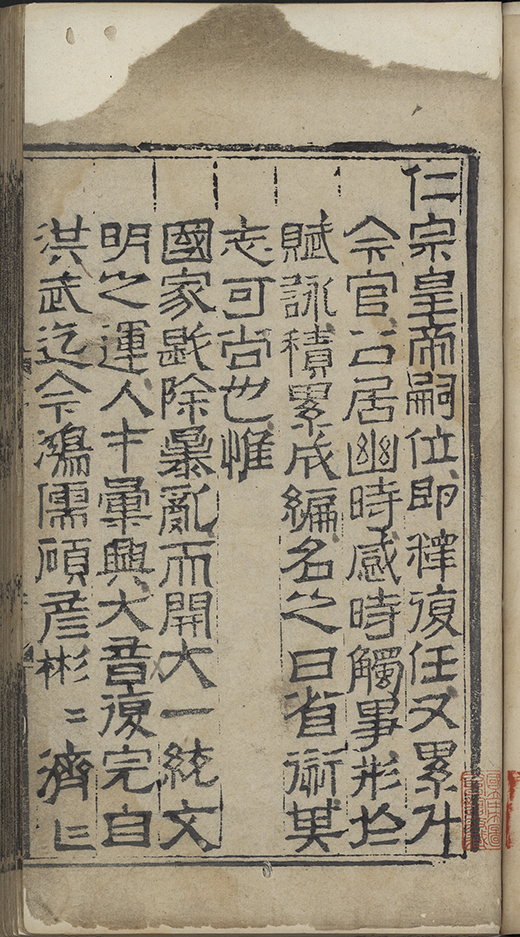 仁宗皇帝嗣位即釋復任又累升
今官公居幽時感時觸事形於
賦詠積累成編名之曰省愆其
志可尚也惟
國家毆除暴亂而開大一統文
明之運人才彙興大音復完自
洪武迄今鴻儒碩彥彬〻濟〻